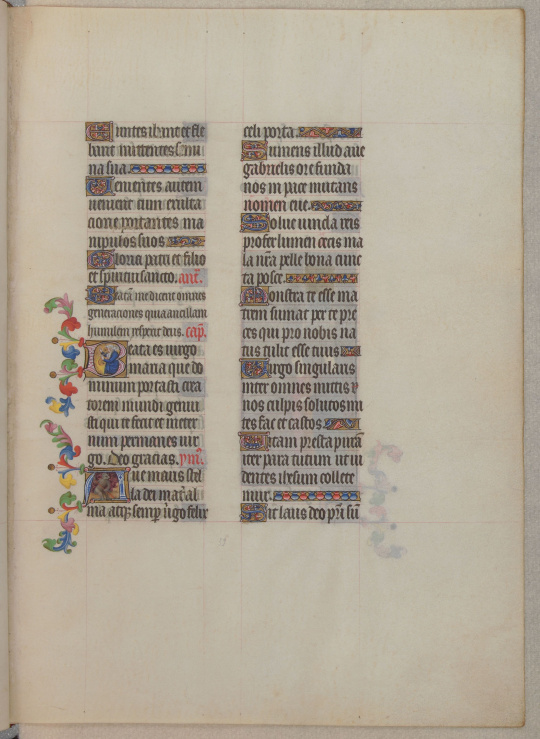 Euntes ibant et fle
bant mittentes semi
na sua.
Venientes autem
venient cum exulta
cione portantes ma
nipulos suos
Gloria patri et filio
et spiritui sancto. añ.
Beatā me dicent omnes
generaciones quia ancillam
humilem respexit deus. cap̄.
Beata es virgo
maria que do
minum portasti crea
torem mundi genui
sti qui te fecit et in eter
num permanes vir
go. Deo gracias. ym̄.
Ave maris stel
la dei mat̄ al
ma atq; semp v̄go felix
celi porta.
Sumens illud ave
gabrielis ore funda
nos in pace mutans
nomen eve.
Solve vincla reis
profer lumen cecis ma
la nr̄a pelle bona cunc
ta posce.
Monstra te esse ma
trem sumat per te pre
ces qui pro nobis na
tus tulit esse tuus
Virgo singularis
inter omnes mittis &
nos culpis solutos mi
tes fac et castos
Vitam presta purā
iter para tutum ut vi
dentes ihesum collete
mur.
Sit laus deo pr̄i sū